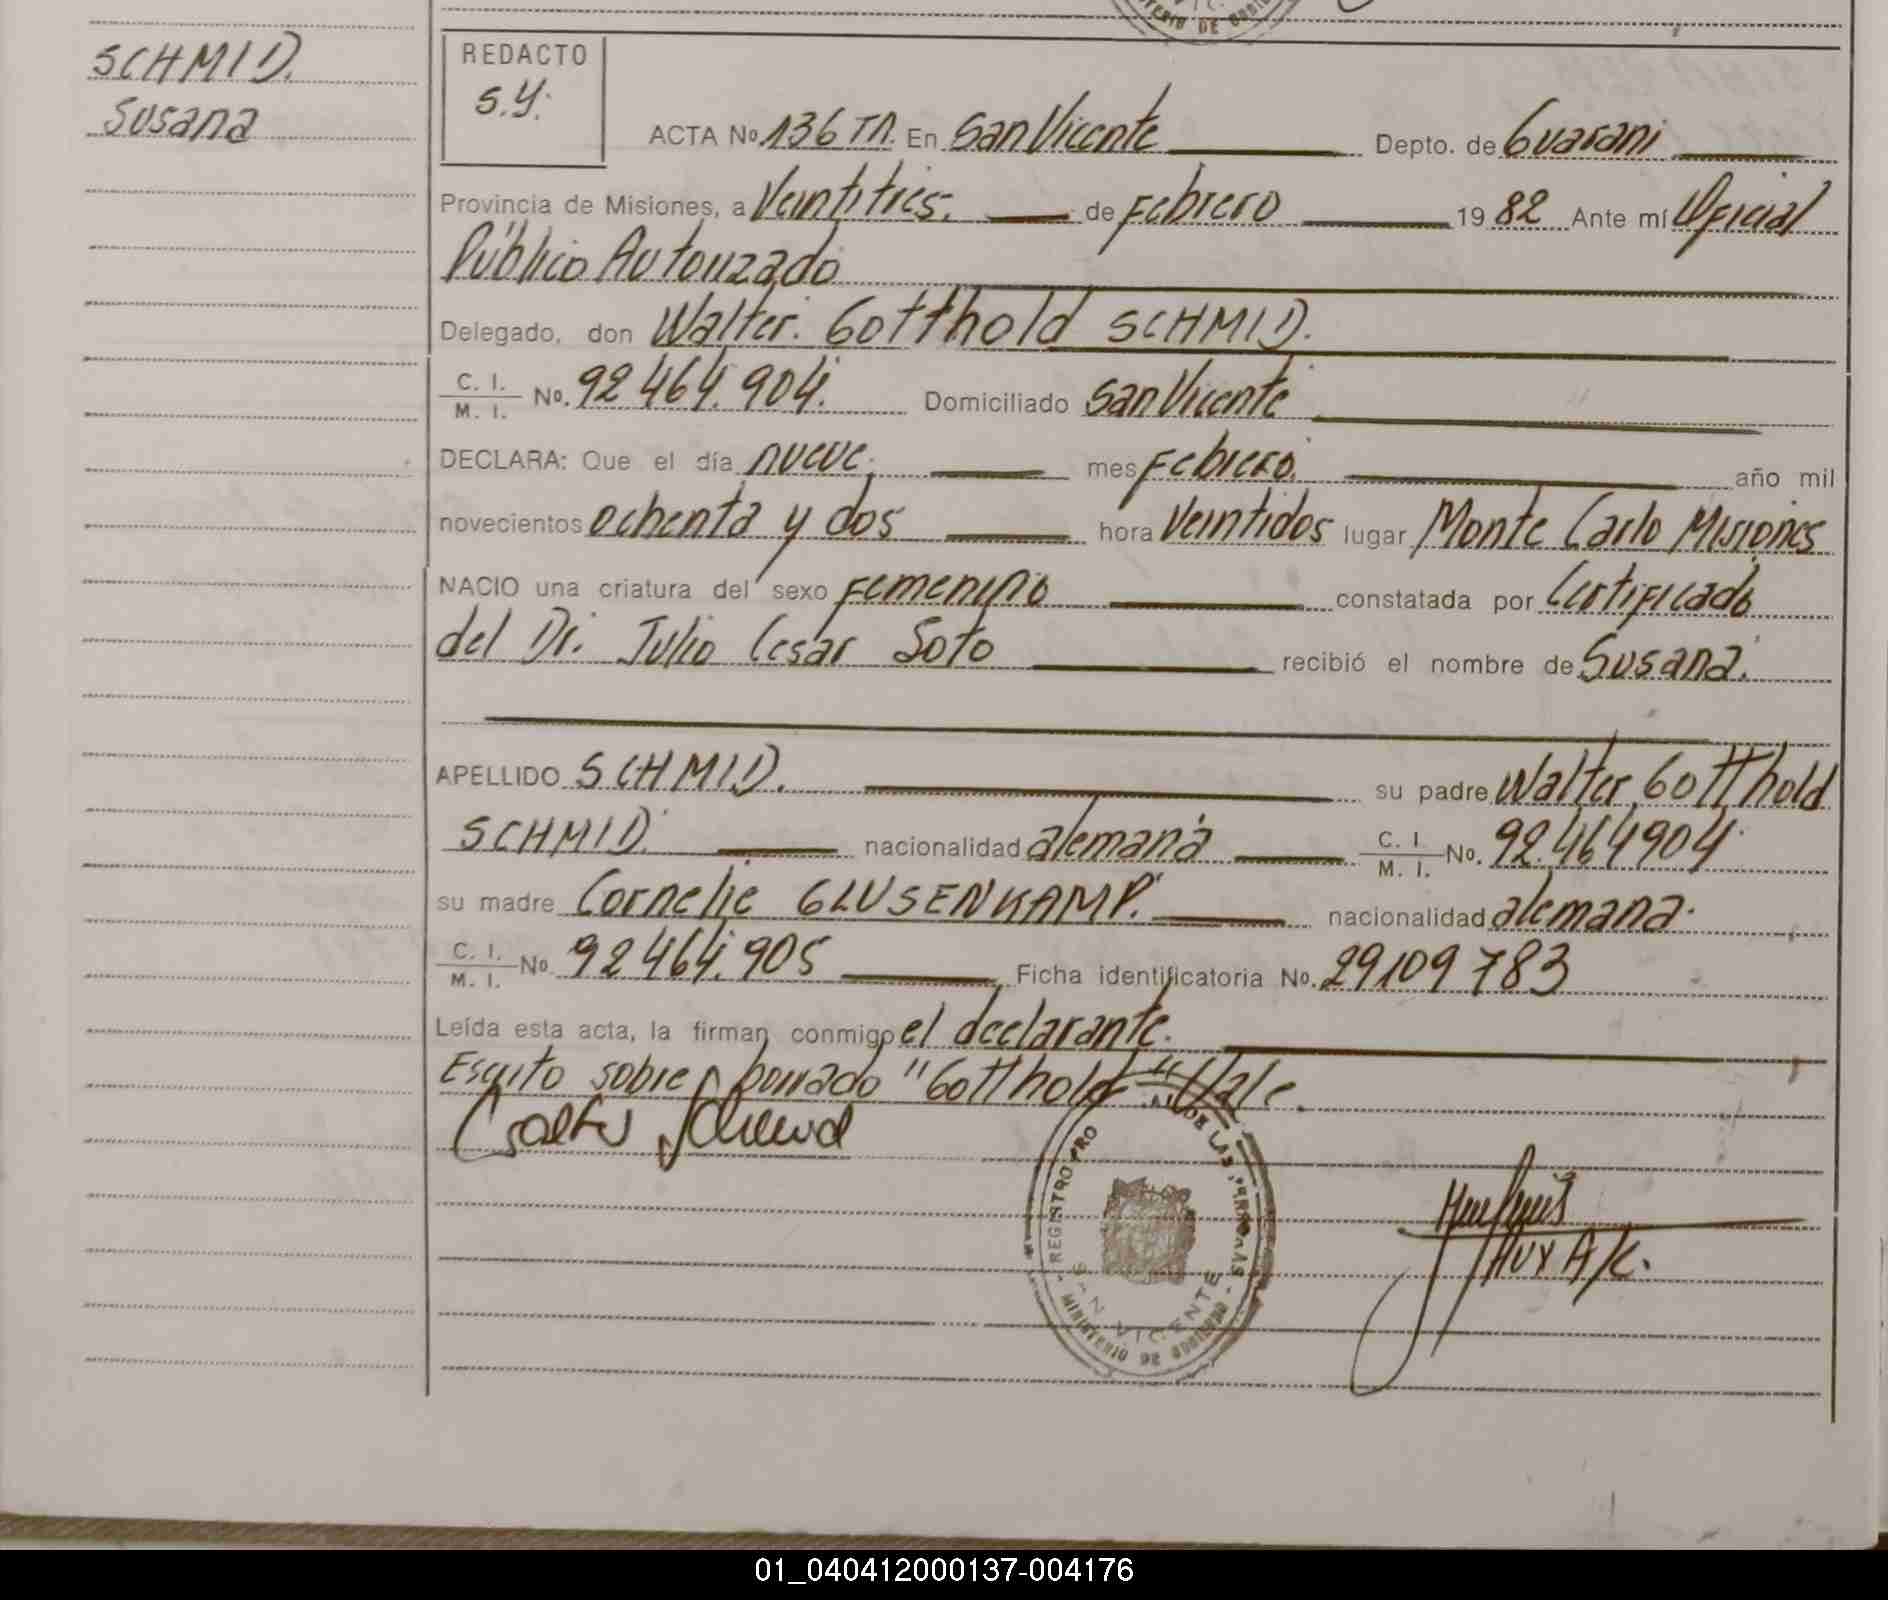 SCHMID.
Susana
REDACTO
S.Y.
ACTA No. 136 Tn. En San Vicente Depto. de Guarani
Provincia de Misiones, a Veintitres. de Febrero 19 82 Ante mí Oficial
Público Autorizado
Delegado, don Walter. Gotthold SCHMID.
C. I.
M. I. No. 92 464. 904. Domiciliado San Vicente
DECLARA: Que el día nueve. mes Febrero. año mil
novecientos ochenta y dos hora Veintidos lugar Monte Carlo Misiones
NACIO una criatura del sexo Femenino constatada por Certificado
del Dr. Julio Cesar Soto recibió el nombre de Susana.
APELLIDO SCHMID. su padre Walter Gotthold
SCHMID. nacionalidad alemana C. I.
M. I. No. 92.464904
su madre Cornelie GLUSENKAMP. nacionalidad alemana.
C. I.
M. I. No 92 464. 905 Ficha identificatoria No. 29109783
Leída esta acta, la firman conmigo el declarante.
Escrito sobre borrado "Gotthold" Vale.
Walter Schmid
REGISTRO PRO DE LAS PERSONAS
SAN VICENTE
MINISTERIO DE GOBIERNO
MINISTERIO DE GOBIERNO
01_040412000137-004176